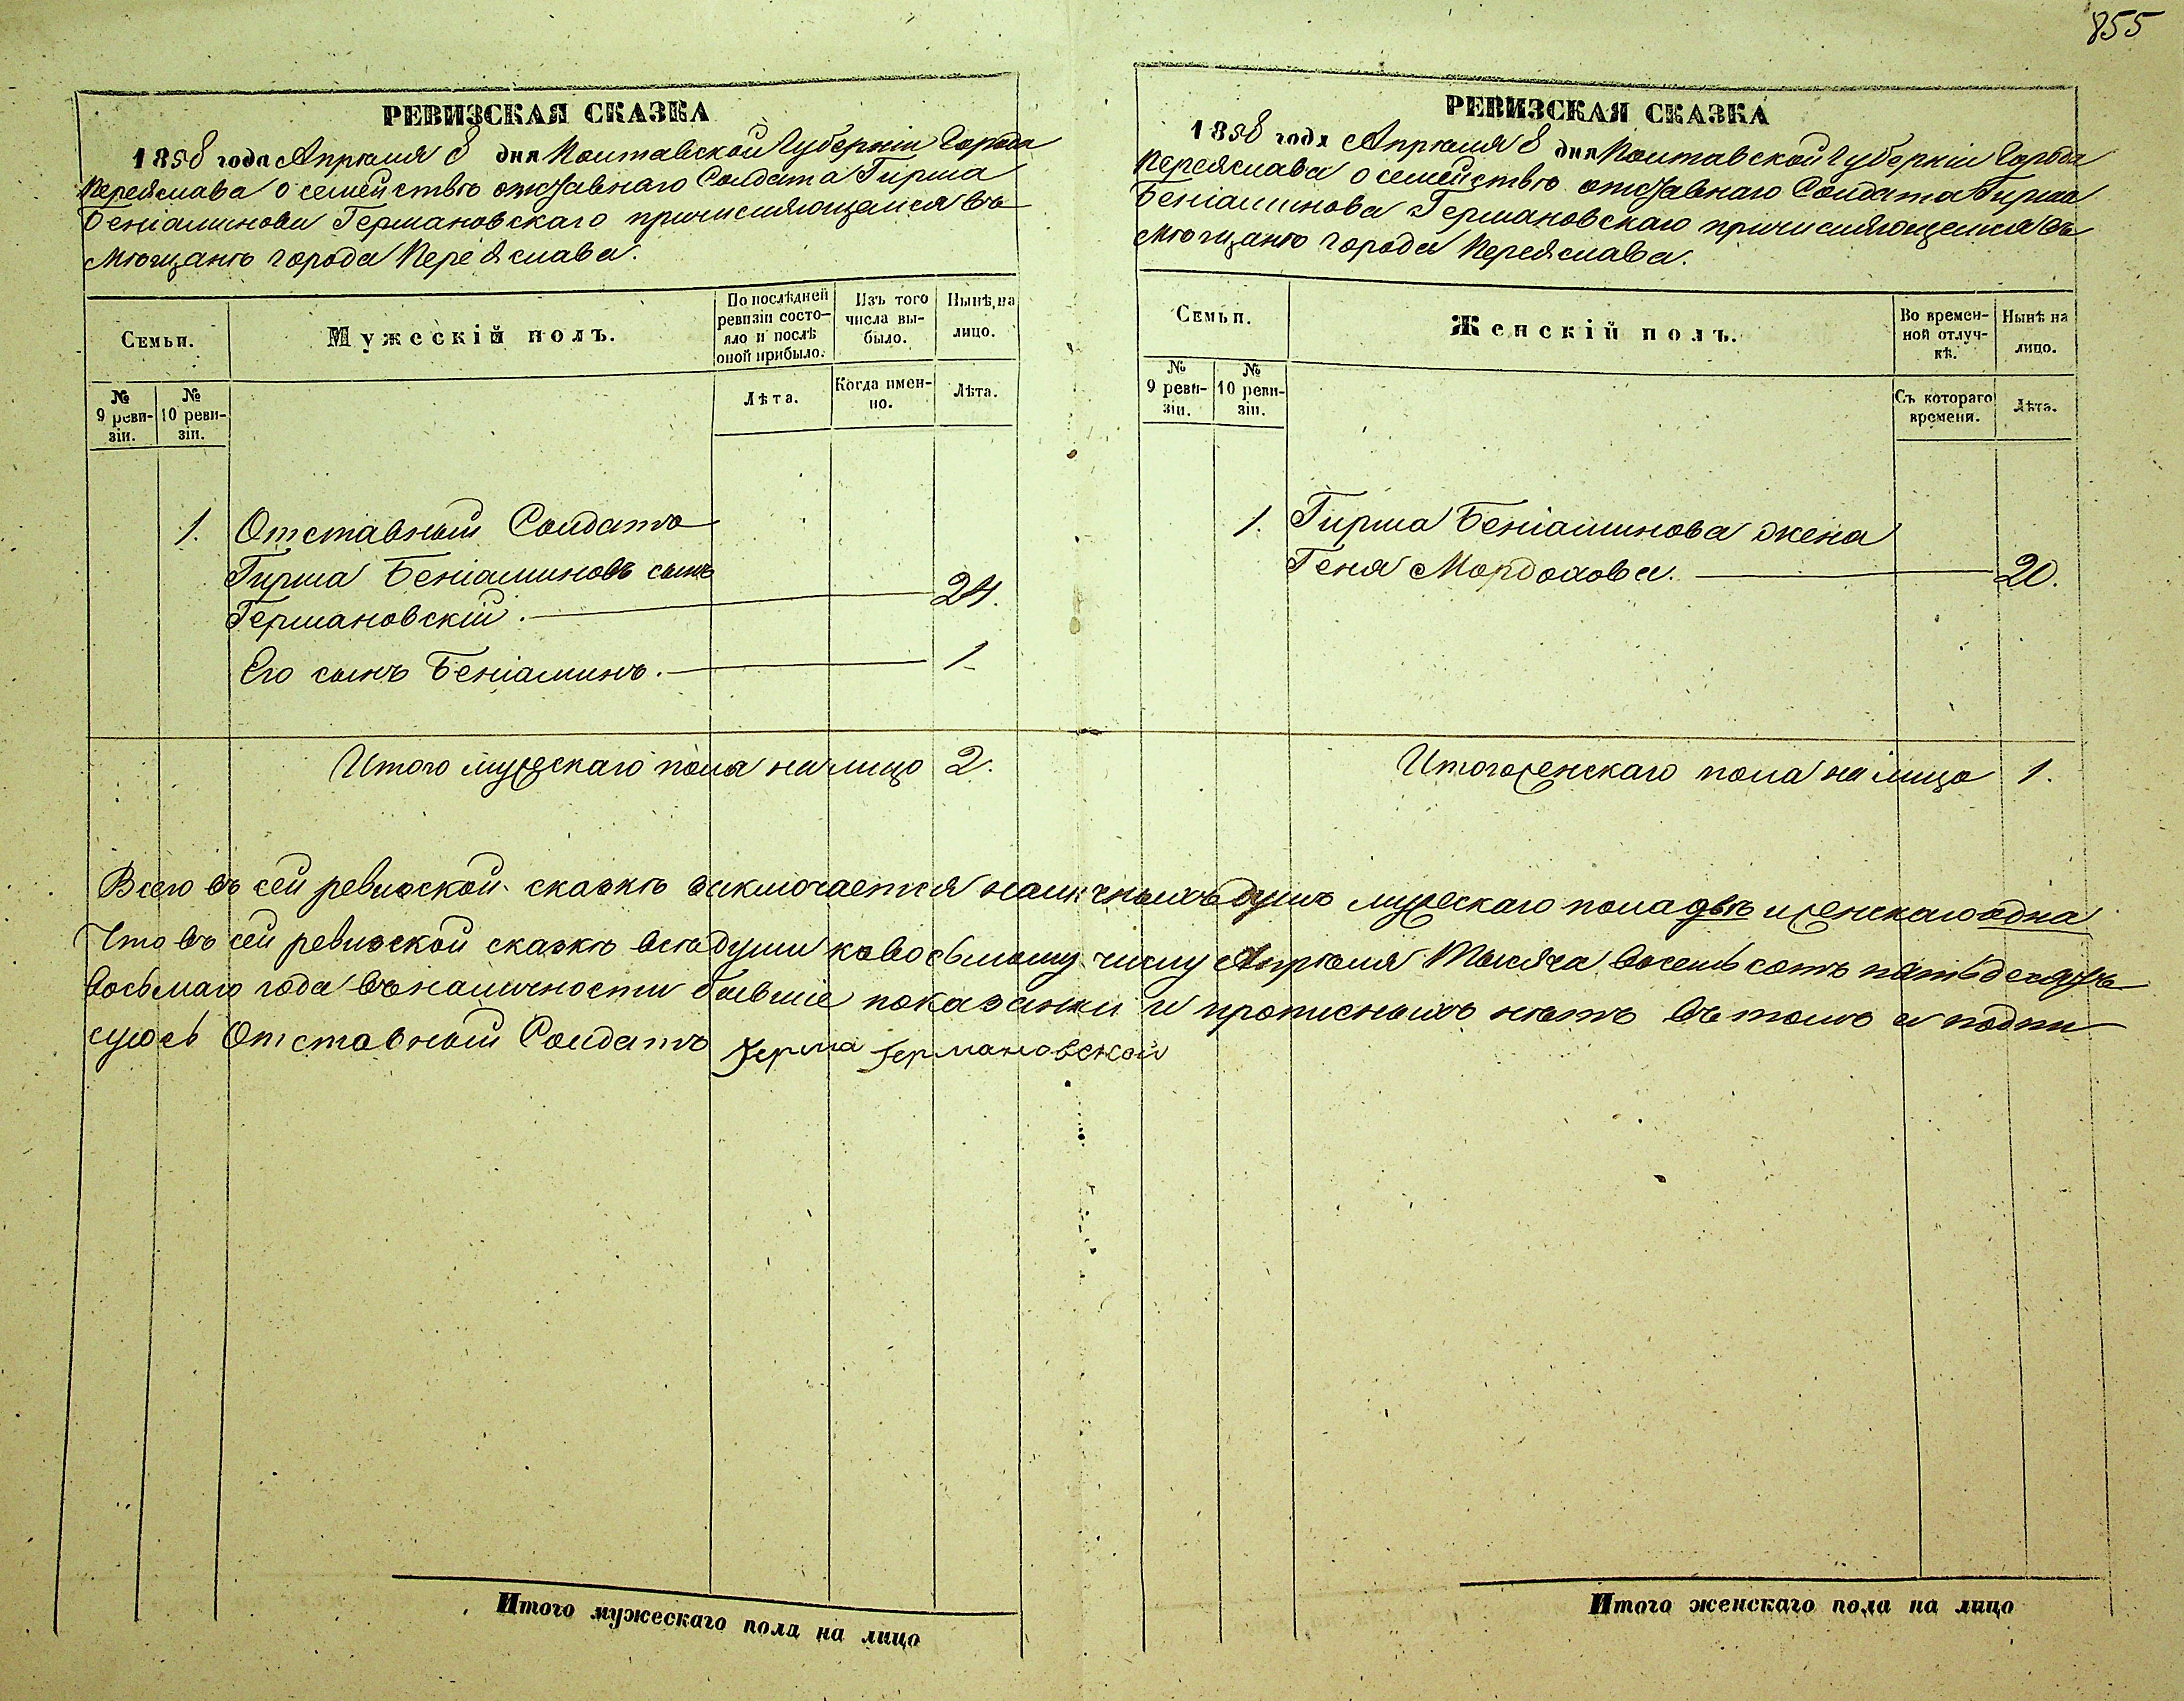 855
РЕВИЗСКАЯ СКАЗКА
1858 года Апрѣля 8 дня Полтавской Губерніи Города
Переяслава о семействѣ отставнаго Солдата Гирша
Беніаминова Германовскаго причисляющемся въ
Мѣщанѣ города Переяслава.
Семьи.
Мужескій полъ.
По послѣдней
ревизіи состо-
яло и послѣ
оной прибыло.
Изъ того
числа вы-
было.
Нынѣ на
лицо.
№
9 реви-
зіи.
№
10 реви-
зіи.
Лѣта.
Когда имен-
но.
Лѣта.
1. Отставный Солдатъ
Гирша Беніаминовъ сынъ
Германовскій. 24.
Его сынъ Беніаминъ. 1
Итого мужескаго пола на лицо 2.
РЕВИЗСКАЯ СКАЗКА
1858 года Апрѣля 8 дня Полтавской Губерніи Города
Переяслава о семействѣ отставнаго Солдата Гирша
Беніаминова Германовскаго причисляющемся въ
Мѣщанѣ города Переяслава.
Семьи.
Женскій полъ.
Во времен-
ной отлуч-
кѣ.
Нынѣ на
лицо.
№
9 реви-
зіи.
№
10 реви-
зіи.
Съ котораго
времени.
Лѣта.
1. Гирша Беніаминова жена
Геня Мордохова. 20.
Итого женскаго пола на лицо 1.
Всего въ сей ревизской сказкѣ заключается наличныхъ душъ мужескаго пола двѣ и женскаго одна
Что въ сей ревизской сказкѣ всѣ души ко восьмому числу Апрѣля Тысяча восемь сотъ пятьдесятъ
восьмаго года въ наличности бывшіе показанни и прописныхъ нѣтъ въ томъ и подпи
суюсь Отставный Солдатъ Герша Германовской
Итого мужескаго пола на лицо
Итого женскаго пола на лицо